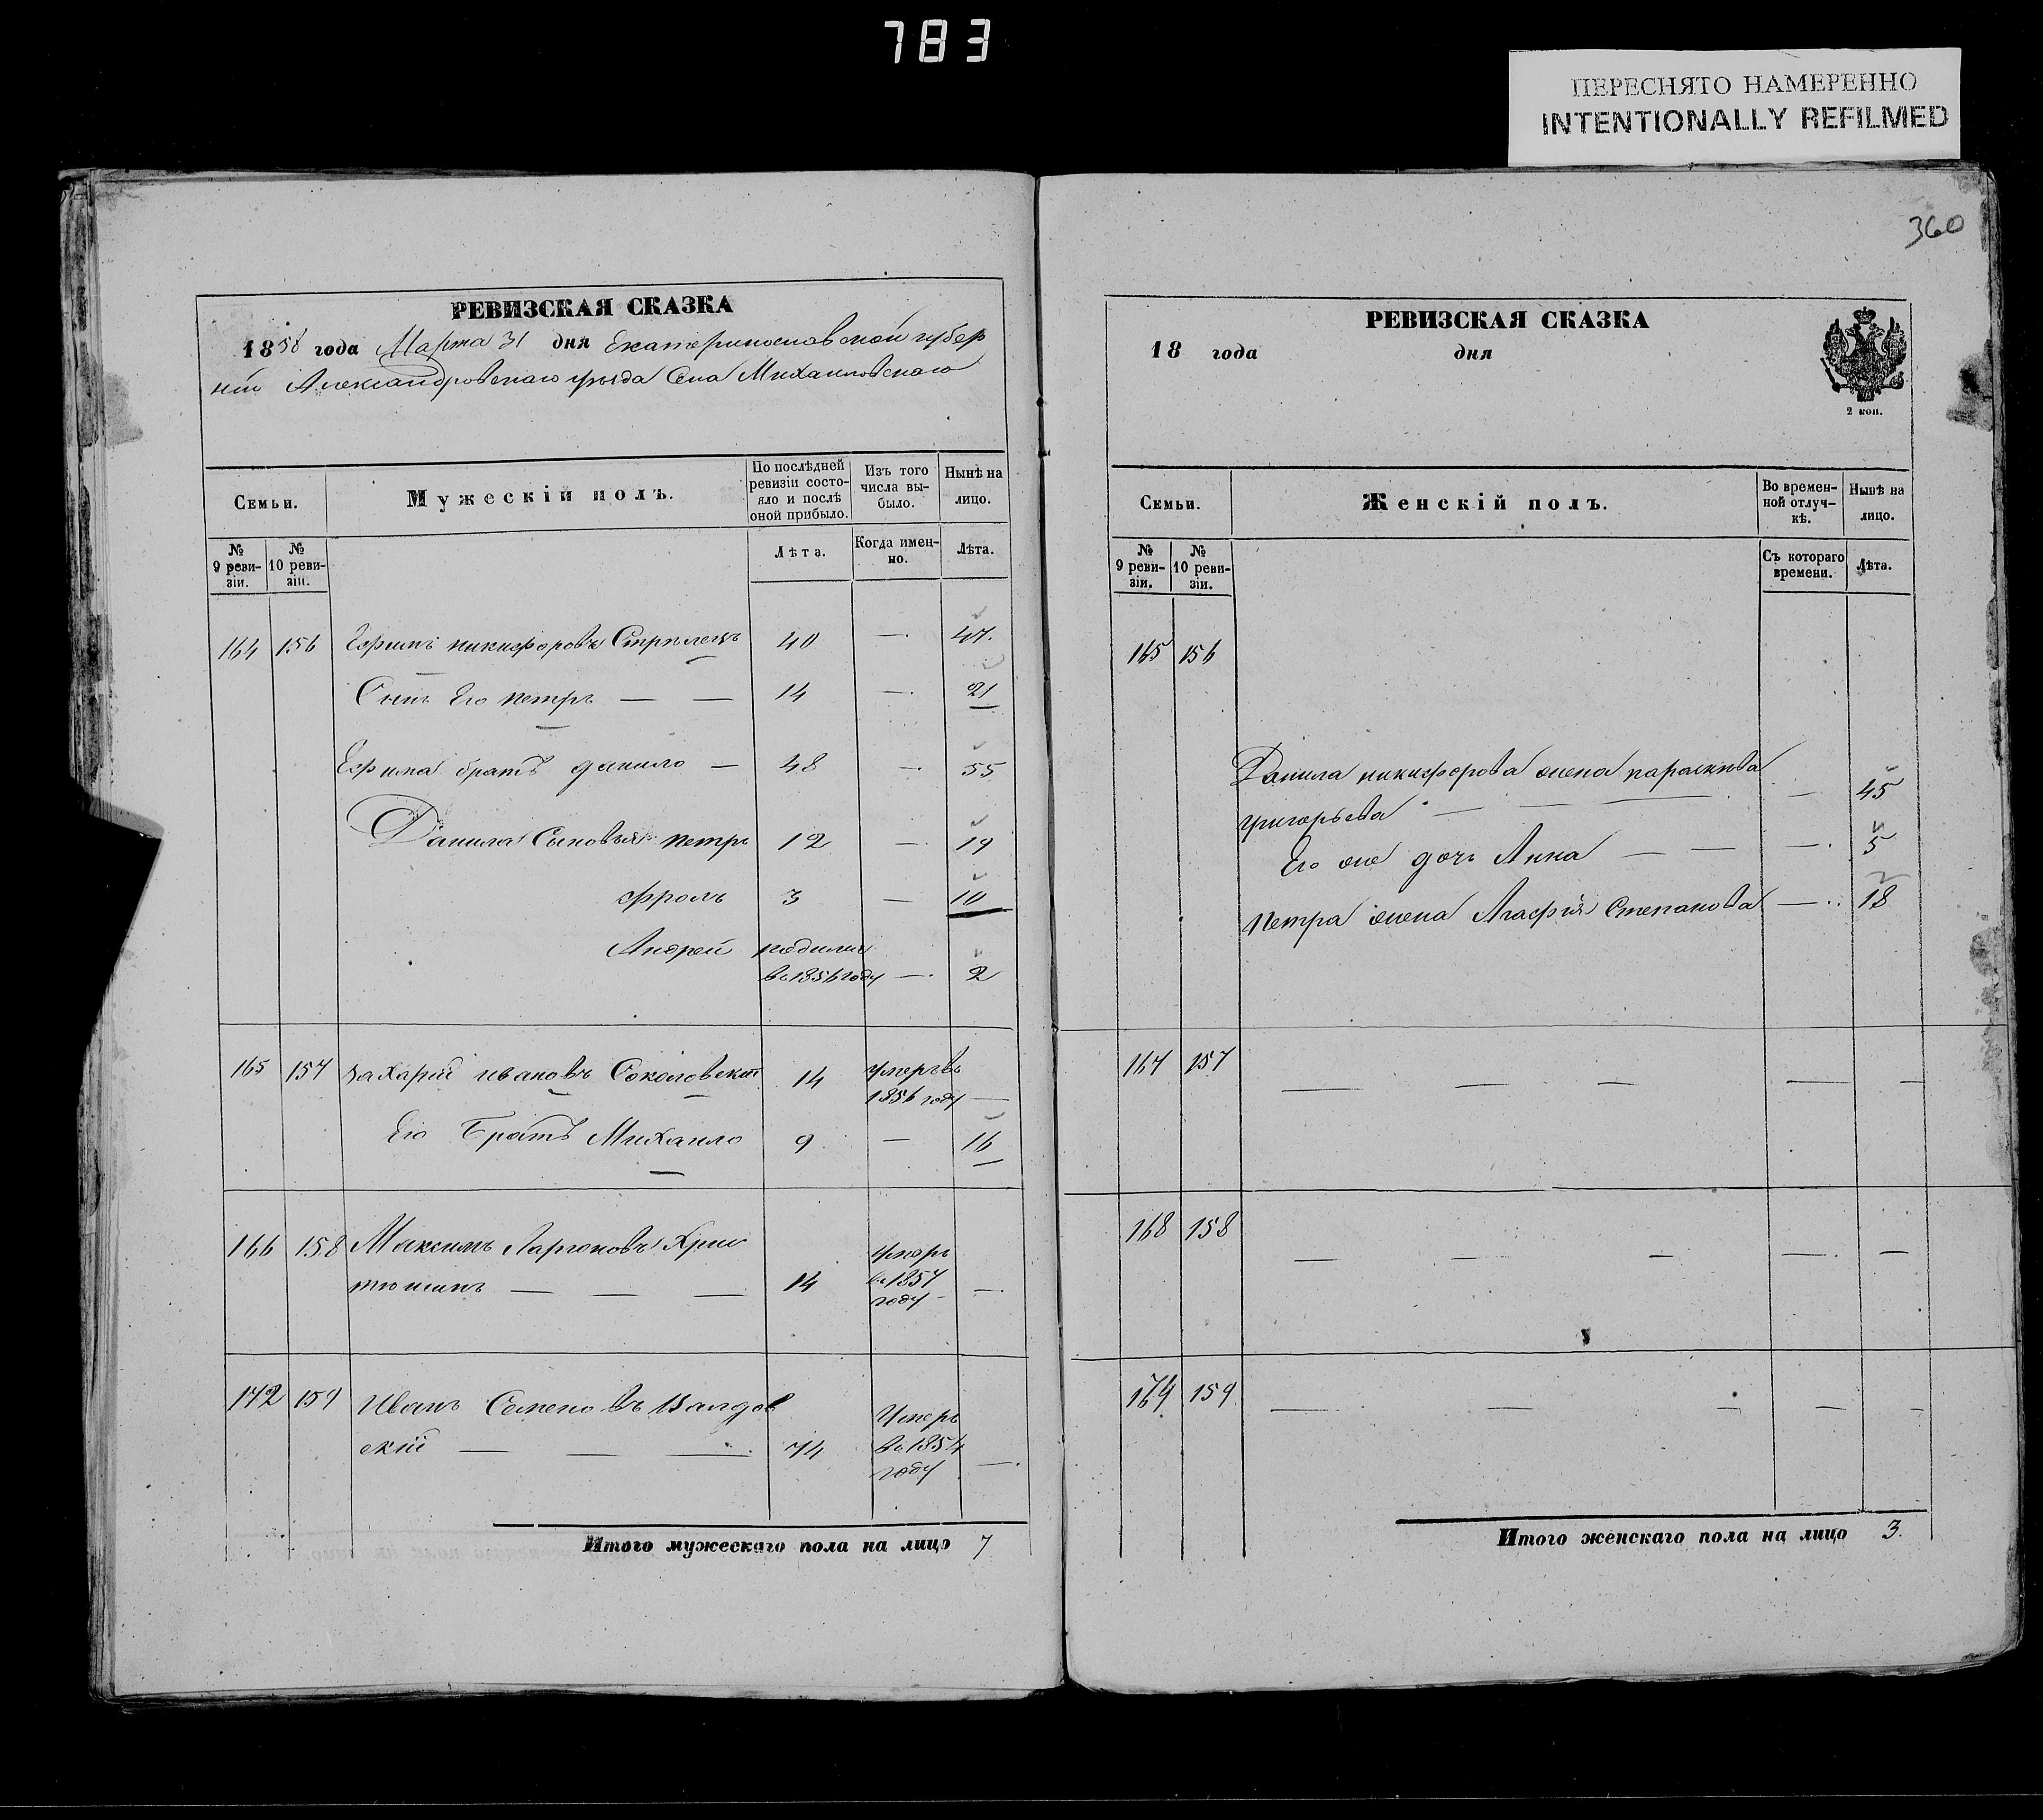 783
ПЕРЕСНЯТО НАМЕРЕННО
INTENTIONALLY REFILMED
360
РЕВИЗСКАЯ СКАЗКА
1858 года Марта 31 дня Екатеринославской губер
ніи Александровскаго уѣзда Села Михайловскаго
Семьи.
Мужескій полъ.
По послѣдней ревизіи состо-
яло и послѣ оной прибыло.
Изъ того числа вы-
было.
Нынѣ на лицо.
№ 9 реви-
зіи.
№ 10 реви-
зіи.
Лѣта.
Когда имен-
но.
Лѣта.
164 156 Ефимъ никифоровъ Стрѣлецъ 40 — 47.
Сынъ Его петръ — — 14 — 21
Ефима братъ данило — 48 — 55
Данила Сыновья петръ 12 — 19
Фролъ 3 — 10
Андрей родился
въ 1856 году — 2
165 157 Захарій ивановъ Соколовскій 14 умеръ въ
1856 году —
Его Братъ Михайло 9 — 16
166 158 Максимъ Ларионовъ
14 умеръ
въ 1857
году —
172 159 Иванъ Семеновъ
скій — — — 74 Умеръ
въ 1854
году —
Итого мужескаго пола на лицо 7
РЕВИЗСКАЯ СКАЗКА
18 года дня
2 коп.
Семьи.
Женскій полъ.
Во времен-
ной отлуч-
кѣ.
Нынѣ на лицо.
№ 9 реви-
зіи.
№ 10 реви-
зіи.
Съ котораго времени.
Лѣта.
165 156
Данила никифорова жена параскева
григорьева — — — — 45
Его же дочь Анна — — — 5
петра жена Агафія Степанова — 18
167 157 — — — — —
168 158 — — — — —
169 159 — — — — —
Итого женскаго пола на лицо 3.